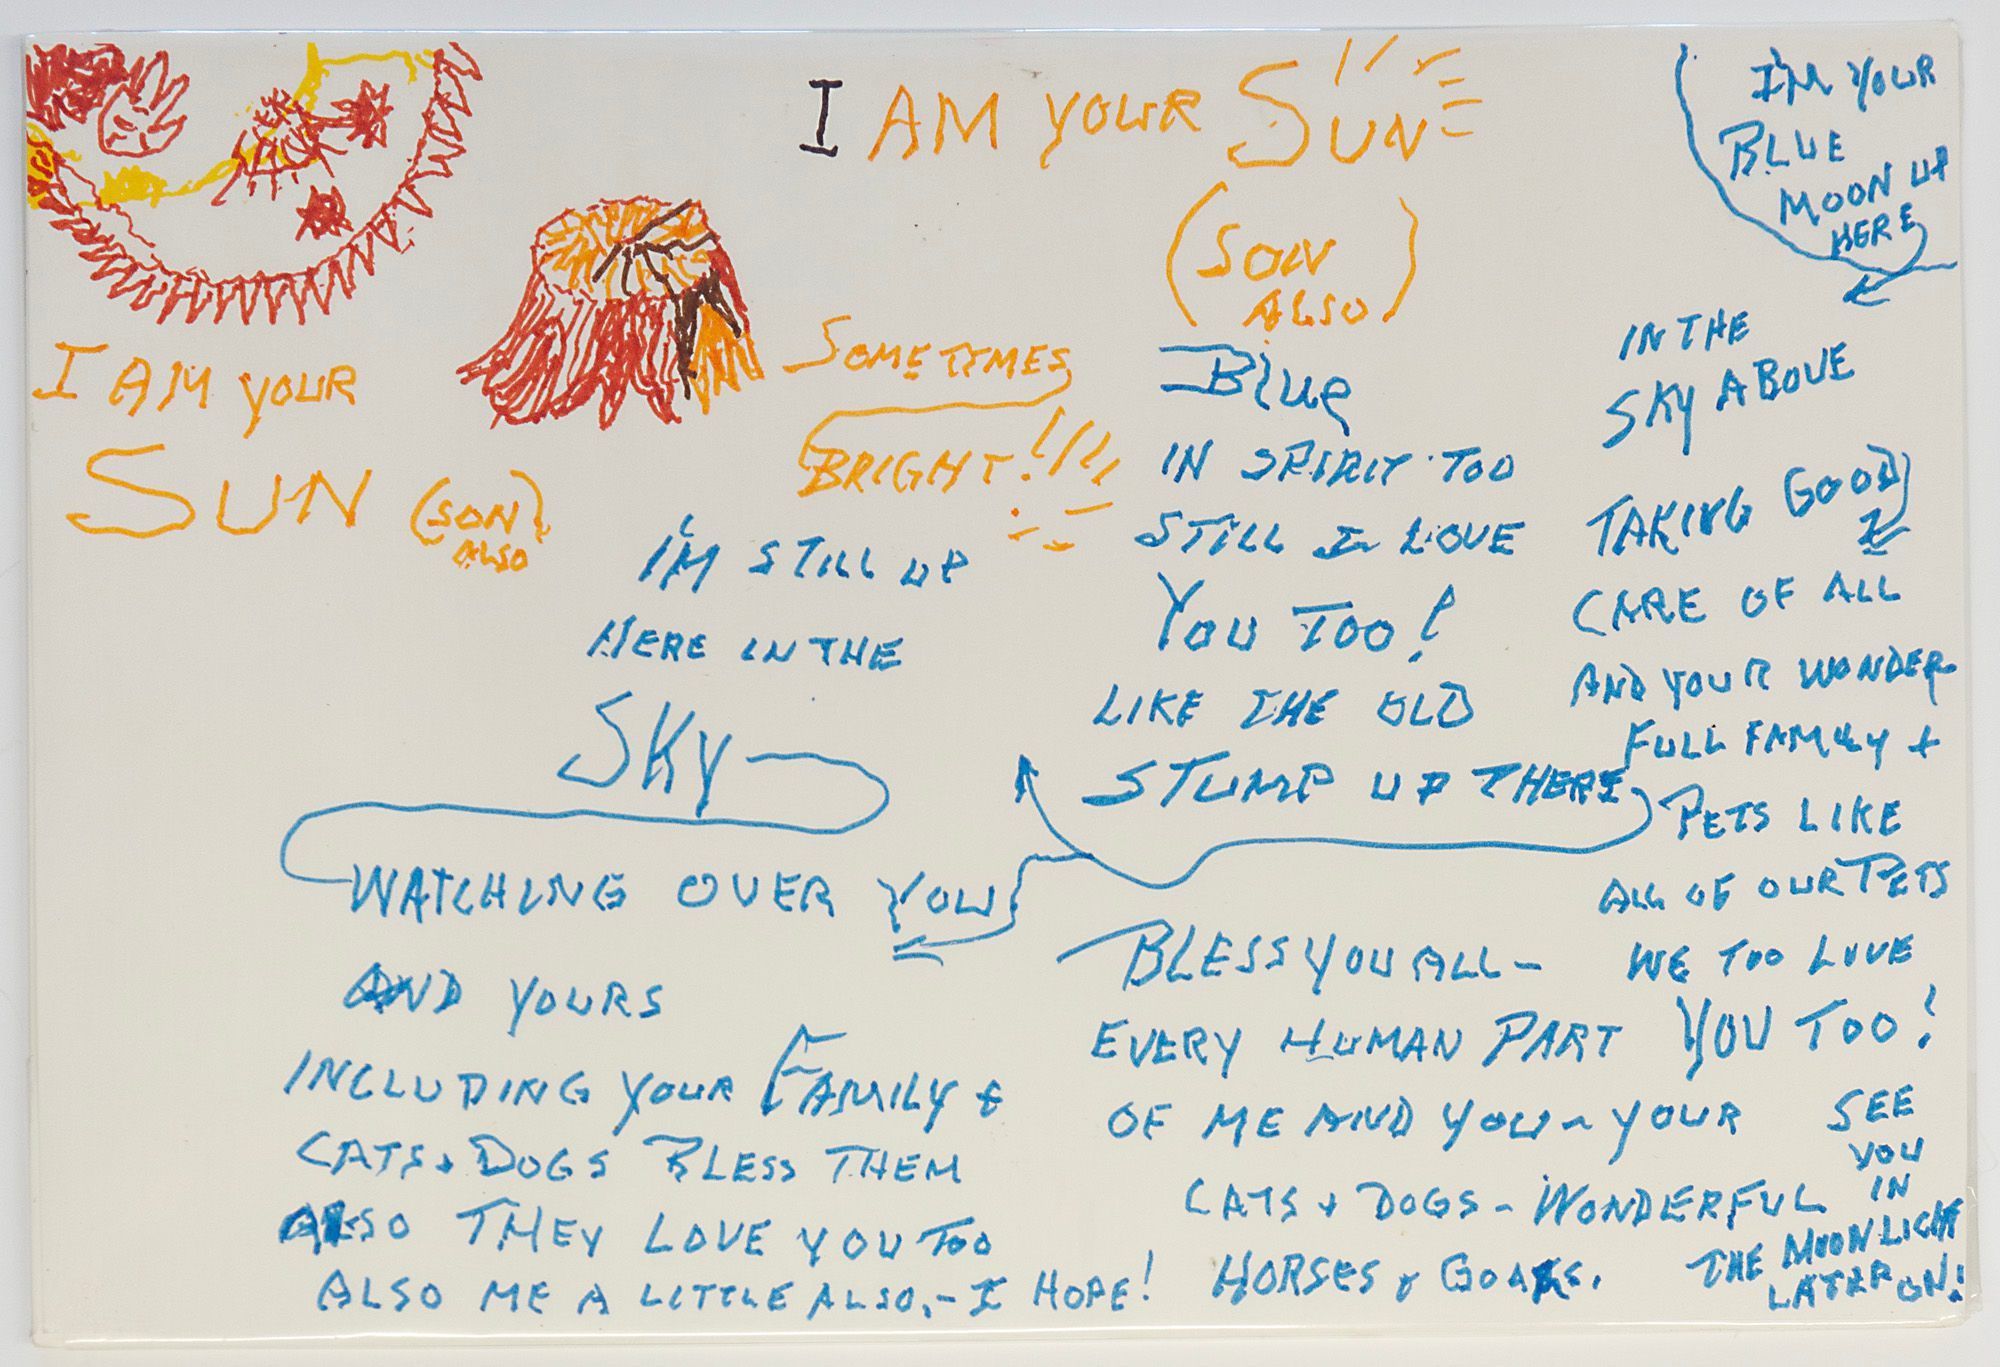 I AM YOUR
SUN (SON
ALSO)
I AM YOUR SUN
(SON
ALSO)
SOMETIMES
BRIGHT!!!!!
Blue
IN SPIRIT TOO
STILL I LOVE
YOU TOO!
LIKE THE OLD
STUMP UP THERE
I'M STILL UP
HERE IN THE
SKY
WATCHING OVER YOU
AND YOURS
INCLUDING YOUR FAMILY &
CATS & DOGS BLESS THEM
ALSO THEY LOVE YOU TOO
ALSO ME A LITTLE ALSO,- I HOPE!
BLESS YOU ALL -
EVERY HUMAN PART
OF ME AND YOU - YOUR
CATS & DOGS - WONDERFUL
HORSES & GOATS.
I'M YOUR
BLUE
MOON UP
HERE
IN THE
SKY ABOVE
TAKING GOOD
CARE OF ALL
AND YOUR WONDER
FULL FAMILY +
PETS LIKE
ALL OF OUR PETS
WE TOO LOVE
YOU TOO!
SEE
YOU
IN
THE MOONLIGHT
LATER ON!